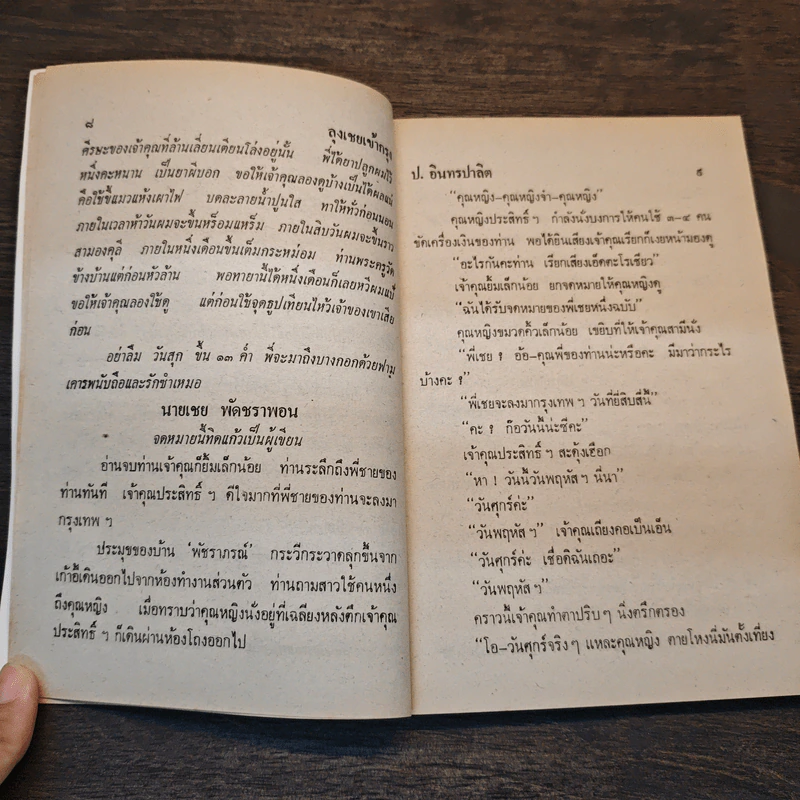 ๘
ลุงเชยเข้ากรุง
ศีรษะของเจ้าคุณที่ล้านเลี่ยนเตียนโล่งอยู่นั้น พี่ได้ยาปลูกผมไว้
หนึ่งคะหนาน เป็นยาผีบอก ขอให้เจ้าคุณลองดูบ้างเป็นได้ผลแน่
คือใช้ขี้แมวแห้งเผาไฟ บดละลายน้ำปูนใส ทาให้ทั่วก่อนนอน
ภายในเวลาห้าวันผมจะขึ้นหร็อมแหร็ม ภายในสิบวันผมจะขึ้นราว
สามองคุลี ภายในหนึ่งเดือนขึ้นเต็มกระหม่อม ท่านพระครูวัด
ข้างบ้านแต่ก่อนหัวล้าน พอทายานี้ได้หนึ่งเดือนก็เลยหวีผมแป้
ขอให้เจ้าคุณลองใช้ดู แต่ก่อนใช้จุดธูปเทียนไหว้เจ้าของเขาเสีย
ก่อน
อย่าลืม วันสุก ขึ้น ๑๓ ค่ำ พี่จะมาถึงบางกอกด้วยฟามุ
เคารพนับถือและรักช้ำเหมอ
นายเชย พัดชราพอน
จดหมายนี้ทิดแก้วเป็นผู้เขียน
อ่านจบท่านเจ้าคุณก็ยิ้มเล็กน้อย ท่านระลึกถึงพี่ชายของ
ท่านทันที เจ้าคุณประสิทธิ์ ฯ ดีใจมากที่พี่ชายของท่านจะลงมา
กรุงเทพ ฯ
ประมุขของบ้าน ‘พัชราภรณ์’ กระวีกระวาดลุกขึ้นจาก
เก้าอี้เดินออกไปจากห้องทำงานส่วนตัว ท่านถามสาวใช้คนหนึ่ง
ถึงคุณหญิง เมื่อทราบว่าคุณหญิงนั่งอยู่ที่เฉลียงหลังตึกเจ้าคุณ
ประสิทธิ์ ฯ ก็เดินผ่านห้องโถงออกไป
ป. อินทรปาลิต
๙
“คุณหญิง-คุณหญิงจ๋า-คุณหญิง”
คุณหญิงประสิทธิ์ ฯ กำลังนั่งบงการให้คนใช้ ๓-๔ คน
ขัดเครื่องเงินของท่าน พอได้ยินเสียงเจ้าคุณเรียกก็เงยหน้ามองดู
“อะไรกันคะท่าน เรียกเสียงเอ็ดตะโรเชียว”
เจ้าคุณยิ้มเล็กน้อย ยกจดหมายให้คุณหญิงดู
“ฉันได้รับจดหมายของพี่เชยหนึ่งฉบับ”
คุณหญิงขมวดคิ้วเล็กน้อย เขยิบที่ให้เจ้าคุณสามีนั่ง
“พี่เชย ? อ้อ-คุณพี่ของท่านน่ะหรือคะ มีมาว่ากระไร
บ้างคะ ?”
“พี่เชยจะลงมากรุงเทพ ฯ วันที่ยี่สิบสี่นี้”
“คะ ? ก็อวันนี้น่ะซีคะ”
เจ้าคุณประสิทธิ์ ฯ สะดุ้งเฮือก
“หา ! วันนี้วันพฤหัส ฯ นี่นา”
“วันศุกร์ค่ะ”
“วันพฤหัส ฯ” เจ้าคุณเถียงคอเป็นเอ็น
“วันศุกร์ค่ะ เชื่อดิฉันเถอะ”
“วันพฤหัส ฯ”
คราวนี้เจ้าคุณทำตาปริบ ๆ นิ่งตรึกตรอง
“โอ-วันศุกร์จริง ๆ แหละคุณหญิง ตายโหงนี่มันตั้งเที่ยง